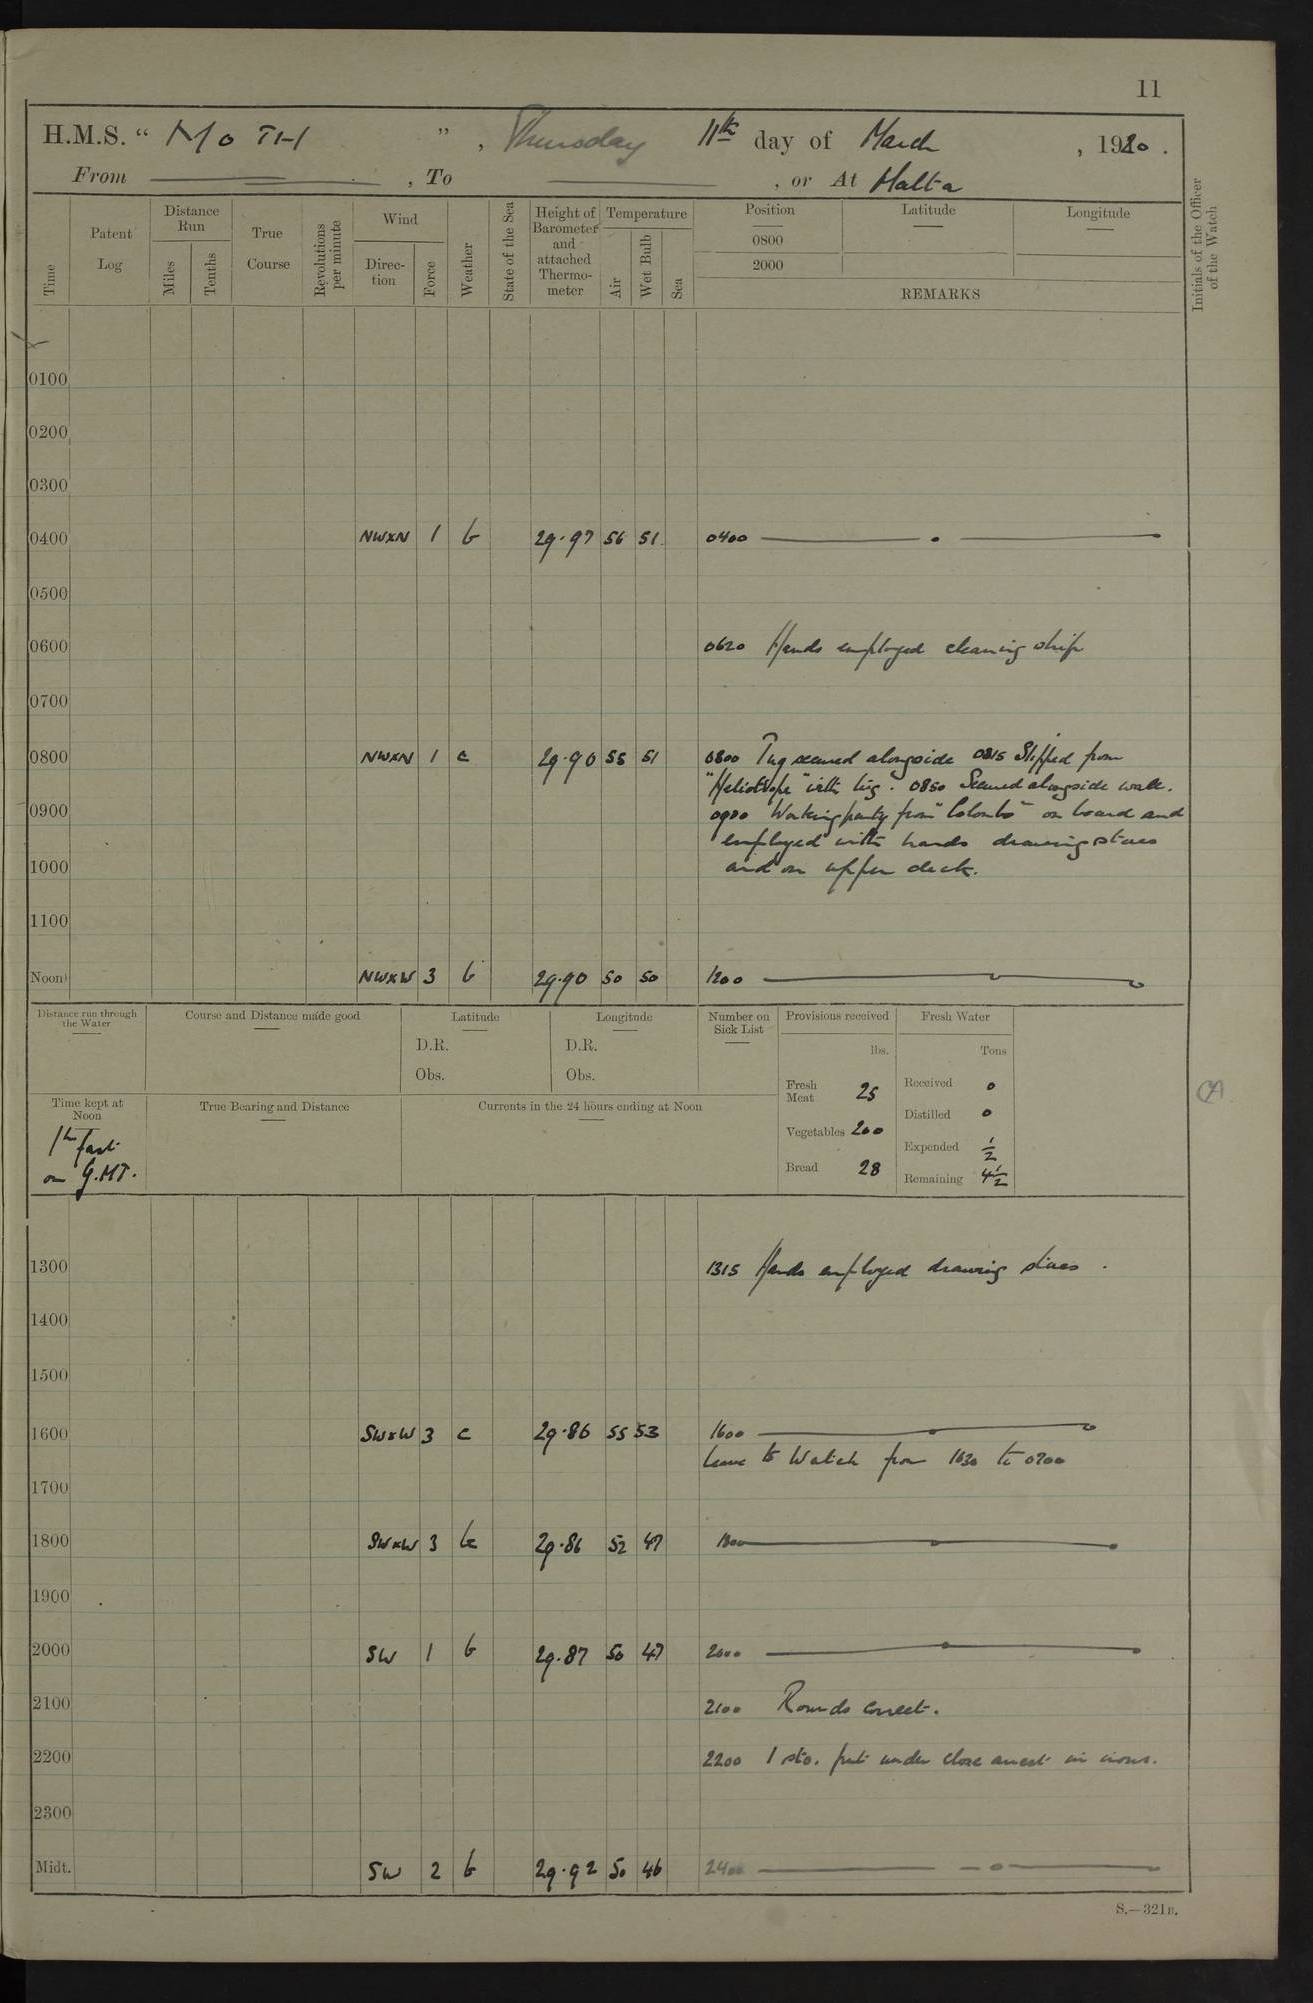 11
H.M.S. “ MOTH ”, Thursday 11th day of March, 1920.
From ———, To ———, or At Malta
Time
Patent Log
Distance Run
Miles
Tenths
True Course
Revolutions per minute
Wind
Direction
Force
Weather
State of the Sea
Height of Barometer and attached Thermometer
Temperature
Air
Wet Bulb
Sea
Position
0800
2000
Latitude
Longitude
REMARKS
Initials of the Officer of the Watch
0100
0200
0300
0400 NWxN 1 b 29.97 56 51 0400
0500
0600 0620 Hands employed cleaning ship
0700
0800 NWxN 1 c 29.90 55 51 0800 Tug secured alongside 0815 Slipped from
"Heliotrope" with tug. 0850 Secured alongside wall.
0900 0900 Working party from "Colombo" on board and
employed with hands drawing stores
1000 and on upper deck.
1100
Noon NWxW 3 b 29.90 50 50 1200
Distance run through the Water
Course and Distance made good
Latitude
D.R.
Obs.
Longitude
D.R.
Obs.
Number on Sick List
Provisions received
lbs.
Fresh Meat 25
Vegetables 200
Bread 28
Fresh Water
Tons
Received 0
Distilled 0
Expended ½
Remaining 4½
Time kept at Noon
1hr fast
on G.M.T.
True Bearing and Distance
Currents in the 24 hours ending at Noon
1300 1315 Hands employed drawing stores.
1400
1500
1600 SWxW 3 c 29.86 55 53 1600
Leave to Watch from 1630 to 0700
1700
1800 SWxW 3 bc 29.86 52 47 1800
1900
2000 SW 1 b 29.87 50 47 2000
2100 2100 Rounds correct.
2200 2200 1 sto. put under close arrest in irons.
2300
Midt. SW 2 b 29.92 50 46 2400
S.—321B.